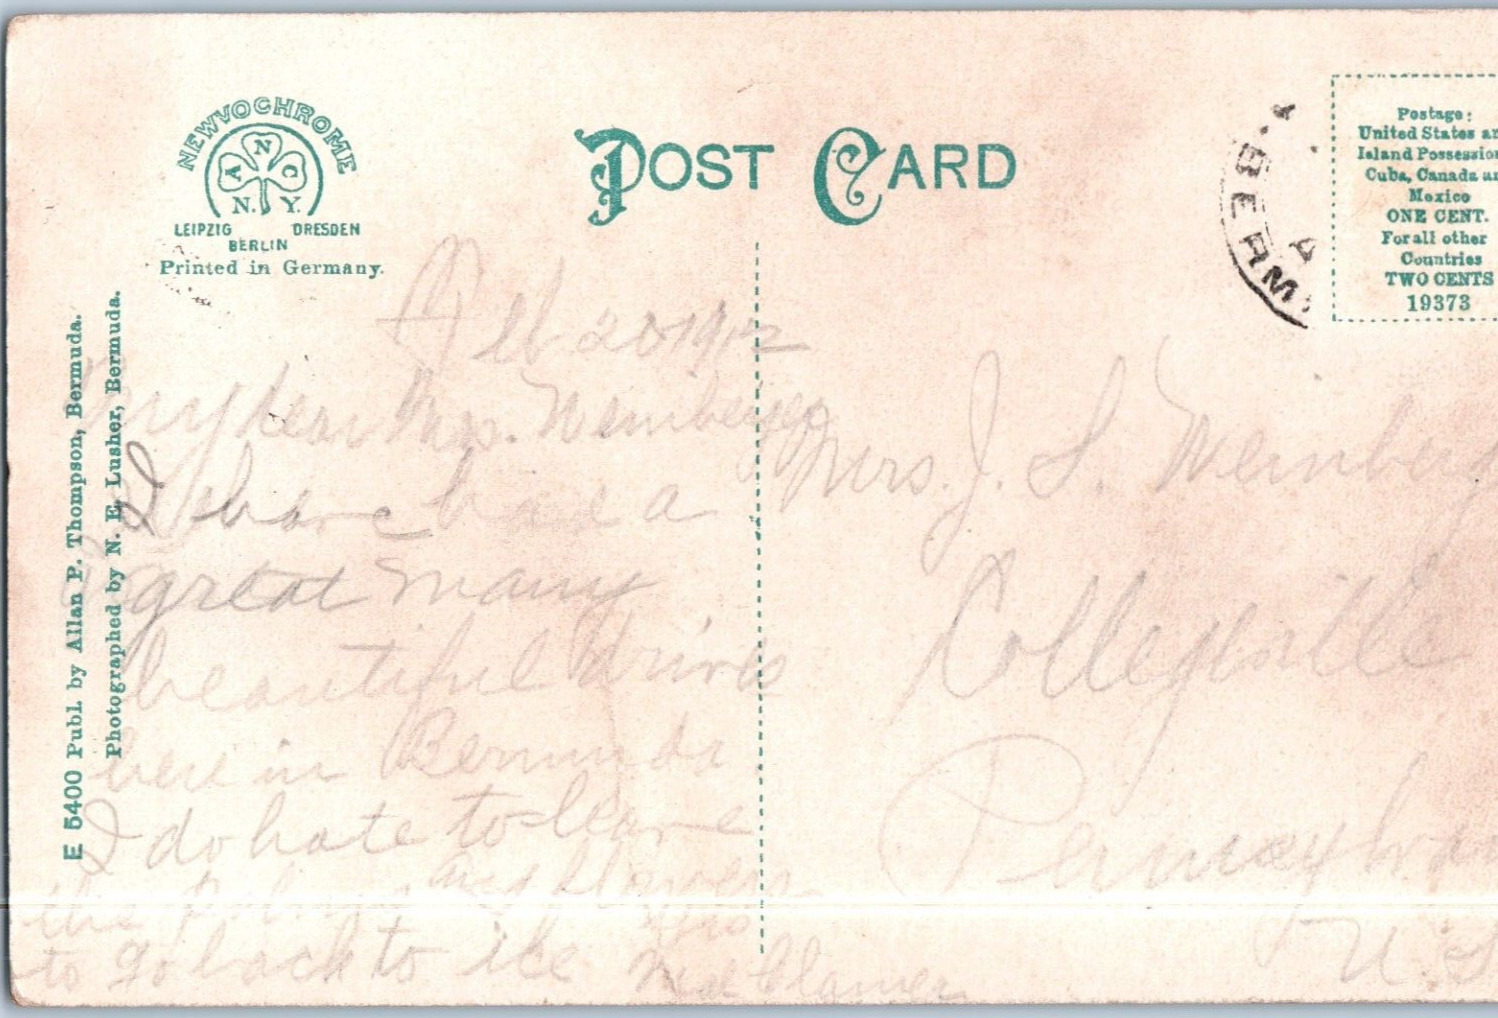 NEWVOCHROME
A N C
N. Y.
LEIPZIG DRESDEN
BERLIN
Printed in Germany.
POST CARD
BERMU
Postage:
United States an
Island Possession
Cuba, Canada an
Mexico
ONE CENT.
For all other
Countries
TWO CENTS
19373
E 5400 Publ. by Allan P. Thompson, Bermuda.
Photographed by N. E. Lusher, Bermuda.
Feb 20 1912
My dear Mrs.
I have had a
great many
beautiful drives
here in Bermuda
I do hate to leave
the and flowers
to go back to ice
Mrs. J. S. Weinberg
Collegeville
Pennsylva
U.S